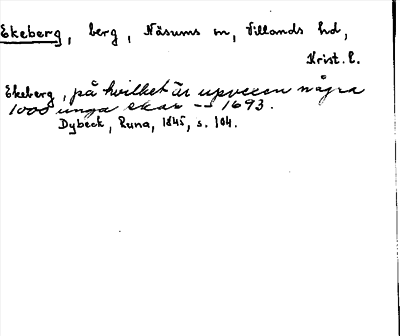 Ekeberg, berg, Näsums sn, Villands hd,
Krist. l.
Ekeberg, på hvilket är upvexen några
1000 unga ekar -- 1693.
Dybeck, Runa, 1845, s. 104.